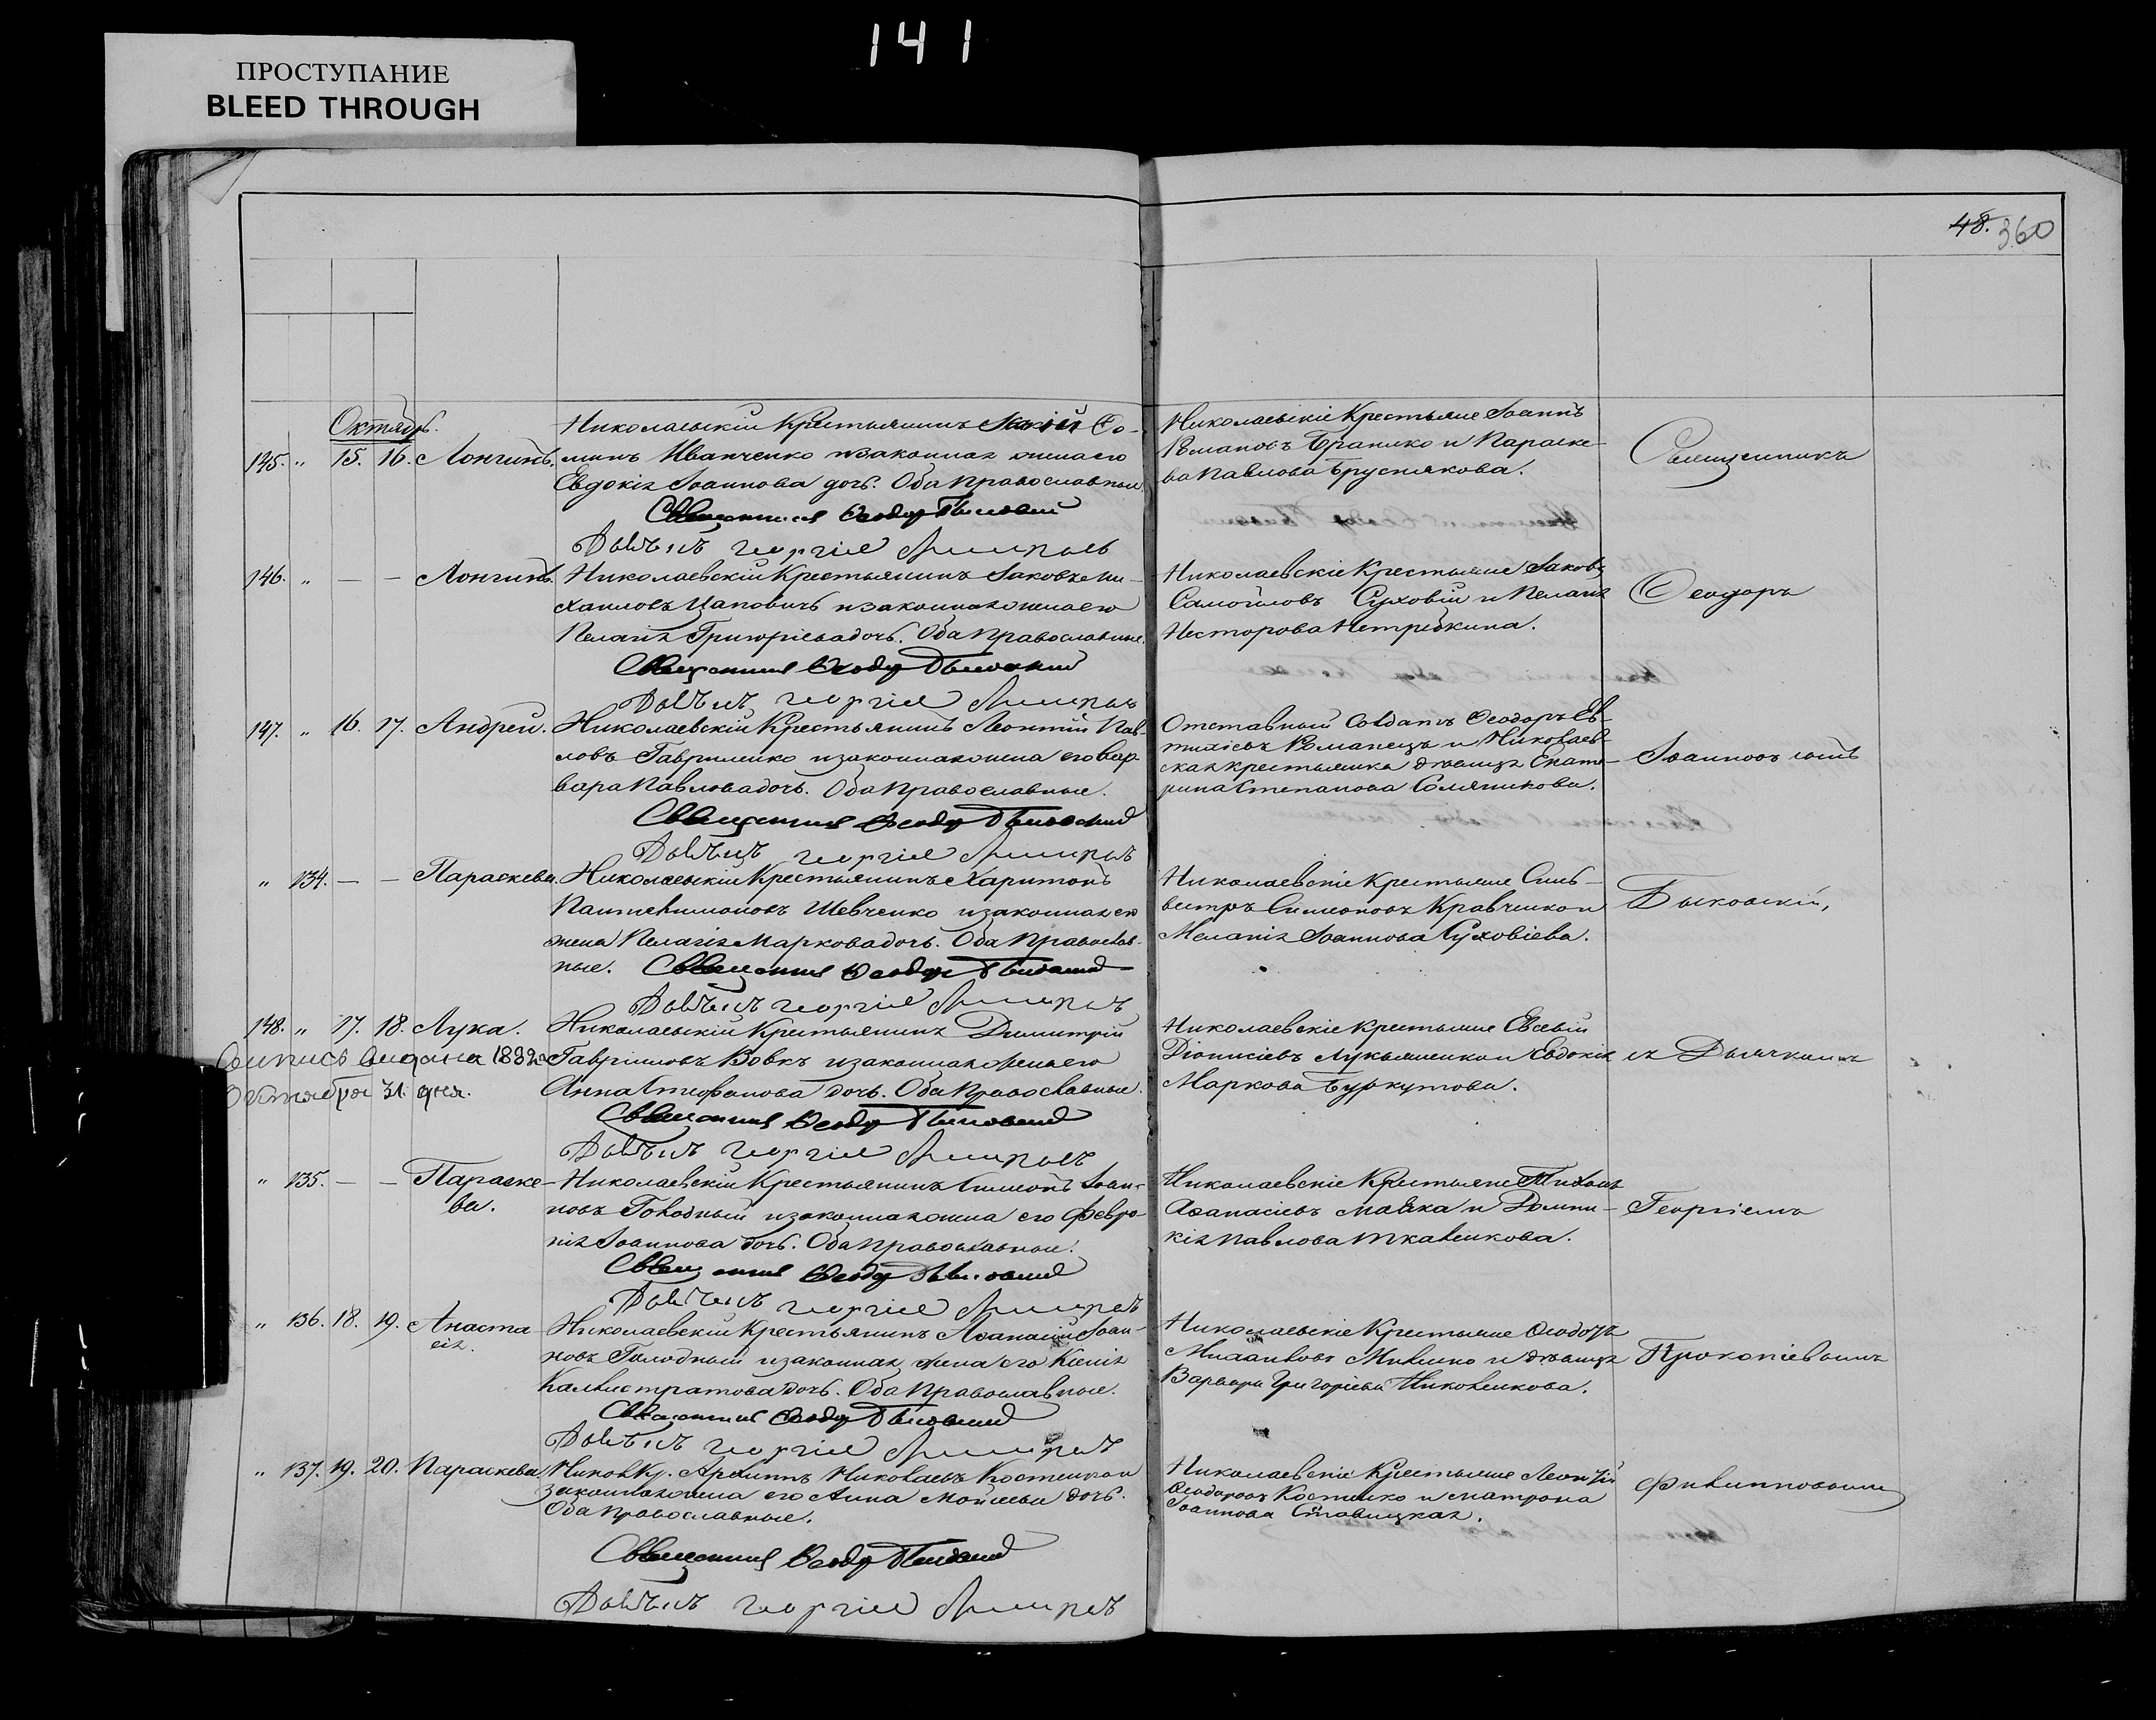 141
ПРОСТУПАНИЕ
BLEED THROUGH
48. 360
Октябрь.
145. " 15. 16. Лонгинъ.
Николаевскій Крестьянинъ Со-
минъ Иванченко и законная жена его
Евдокія Іоаннова дочь. Оба православные
Священникъ Ѳеодоръ Быковскій
Дьячекъ Георгій
Николаевскіе Крестьяне Іоаннъ
Романовъ Бранико и Параске-
ва Павлова Бруснякова.
Священникъ
146. " — — Лонгинъ.
Николаевскій Крестьянинъ Іаковъ Ми-
хаиловъ Цаповичъ и законная жена его
Пелагія Григоріева дочь. Оба православные.
Священникъ Ѳеодоръ Быковскій
Дьячекъ Георгій
Николаевскіе Крестьяне Іаковъ
Самойловъ Суховій и Пелагія
Несторова Нетребкина.
Ѳеодоръ
147. " 16. 17. Андрей.
Николаевскій Крестьянинъ Леонтій Пав-
ловъ Гавриленко и законная жена его Вар-
вара Павлова дочь. Оба православные.
Священникъ Ѳеодоръ Быковскій
Дьячекъ Георгій
Отставный Солдатъ Ѳеодоръ Ев-
тихіевъ Романецъ и Николаев-
ская крестьянка дѣвица Екате-
рина Степанова Соляникова.
Іоанновъ сынъ
" 134. — — Параскева.
Николаевскій Крестьянинъ Харитонъ
Пантелимоновъ Шевченко и законная его
жена Пелагія Маркова дочь. Оба православ-
ные. Священникъ Ѳеодоръ Быковскій
Дьячекъ Георгій
Николаевскіе Крестьяне Силь-
вестръ Симеоновъ Кравченко и
Меланія Іоаннова Суховіева.
Быковскій,
148. " 17. 18. Лука.
выпись выдана 1892
Октября 31. дня.
Николаевскій Крестьянинъ Димитрій
Гавріиловъ Вовкъ и законная жена его
Анна Стефанова дочь. Оба Православные.
Священникъ Ѳеодоръ Быковскій
Дьячекъ Георгій
Николаевскіе Крестьяне Евсевій
Діонисіевъ Лукьяненко и Евдокія
Маркова Буркутова.
съ Дьячкомъ
" 135. — — Параске-
ва.
Николаевскій Крестьянинъ Симеонъ Іоан-
новъ Голодный и законная жена его Февро-
нія Іоаннова дочь. Оба православные.
Священникъ Ѳеодоръ Быковскій
Дьячекъ Георгій
Николаевскіе Крестьяне Тихонъ
Аѳанасіевъ Маляка и Домни-
кія Павлова Ткаченкова.
Георгіемъ
" 136. 18. 19. Анаста
сія.
Николаевскій Крестьянинъ Аѳанасій Іоан-
новъ Голодный и законная жена его Ксенія
Каллистратова дочь. Оба православные.
Священникъ Ѳеодоръ Быковскій
Дьячекъ Георгій
Николаевскіе Крестьяне Ѳеодоръ
и дѣвица
Варвара Григоріева Николенкова.
Прокопіевымъ
" 137. 19. 20. Параскева
Никол. Кр. Архиппъ Николаевъ Костенко и
законная жена его Анна Моисеева дочь.
Оба православные.
Священникъ Ѳеодоръ Быковскій
Дьячекъ Георгій
Николаевскіе Крестьяне Леонтій
Ѳеодоровъ Костенко и Матрона
Іоаннова Ставицкая.
Филипповымъ